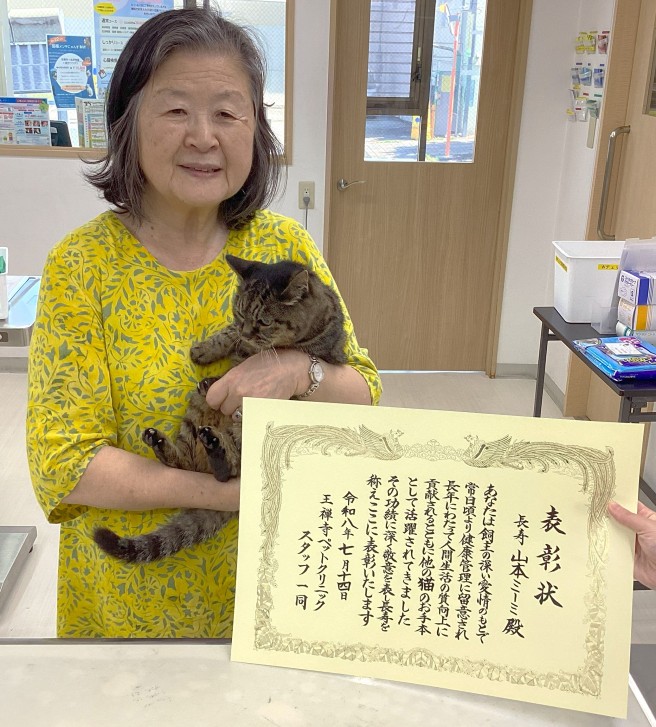 表彰状
長寿 山本ミーミ 殿
あなたは飼主の深い愛情のもとで
常日頃より健康管理に留意され
長年にわたって人間生活の質向上に
貢献されるとともに他の猫のお手本
として活躍されてきました
その功績に深い敬意を表し長寿を
称えここに表彰いたします
令和八年七月十四日
王禅寺ペットクリニック
スタッフ一同